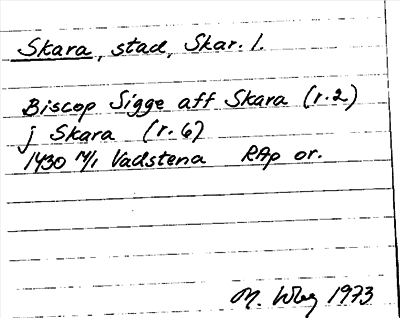 Skara, stad, Skar. l.
Biscop Sigge aff Skara (r.2)
j Skara (r.6)
1430 /1 Vadstena RAp or.
M. 1973